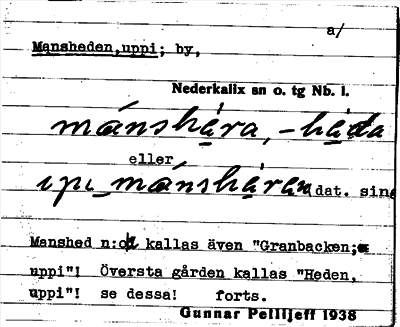 a/
Mansheden,uppi; by,
Nederkalix sn o. tg Nb. l.
mánshära, -häda
eller
ɩpɩ_mánshäran dat. sing
Manshed n:o1 kallas även "Granbacken;
uppi"! Översta gården kallas "Heden,
uppi"! se dessa! forts.
Gunnar Pellijeff 1938